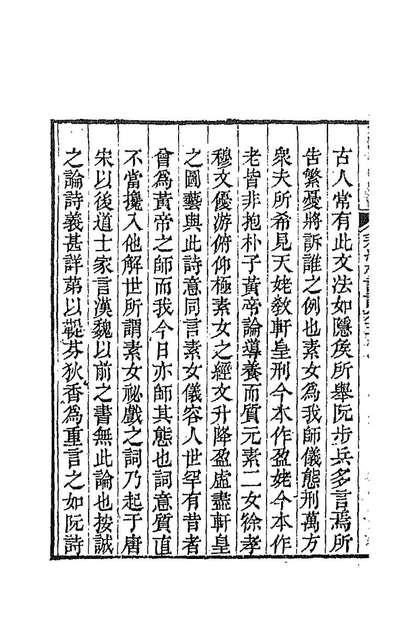 古人常有此文法如隱侯所舉阮步兵多言焉所
告繁憂將訴誰之例也素女為我師儀態刑萬方
衆夫所希見天姥敎軒皇刑今本作盈姥今本作
老皆非抱朴子黃帝論導養而質元素二女徐孝
穆文優游俯仰極素女之經文升降盈虛盡軒皇
之圖藝與此詩意同言素女儀容人世罕有昔者
曾為黃帝之師而我今日亦師其態也詞意質直
不當攙入他解世所謂素女祕戲之詞乃起于唐
宋以後道士家言漢魏以前之書無此論也按誠
之論詩義甚詳苐以鞮芬狄香為重言之如阮詩